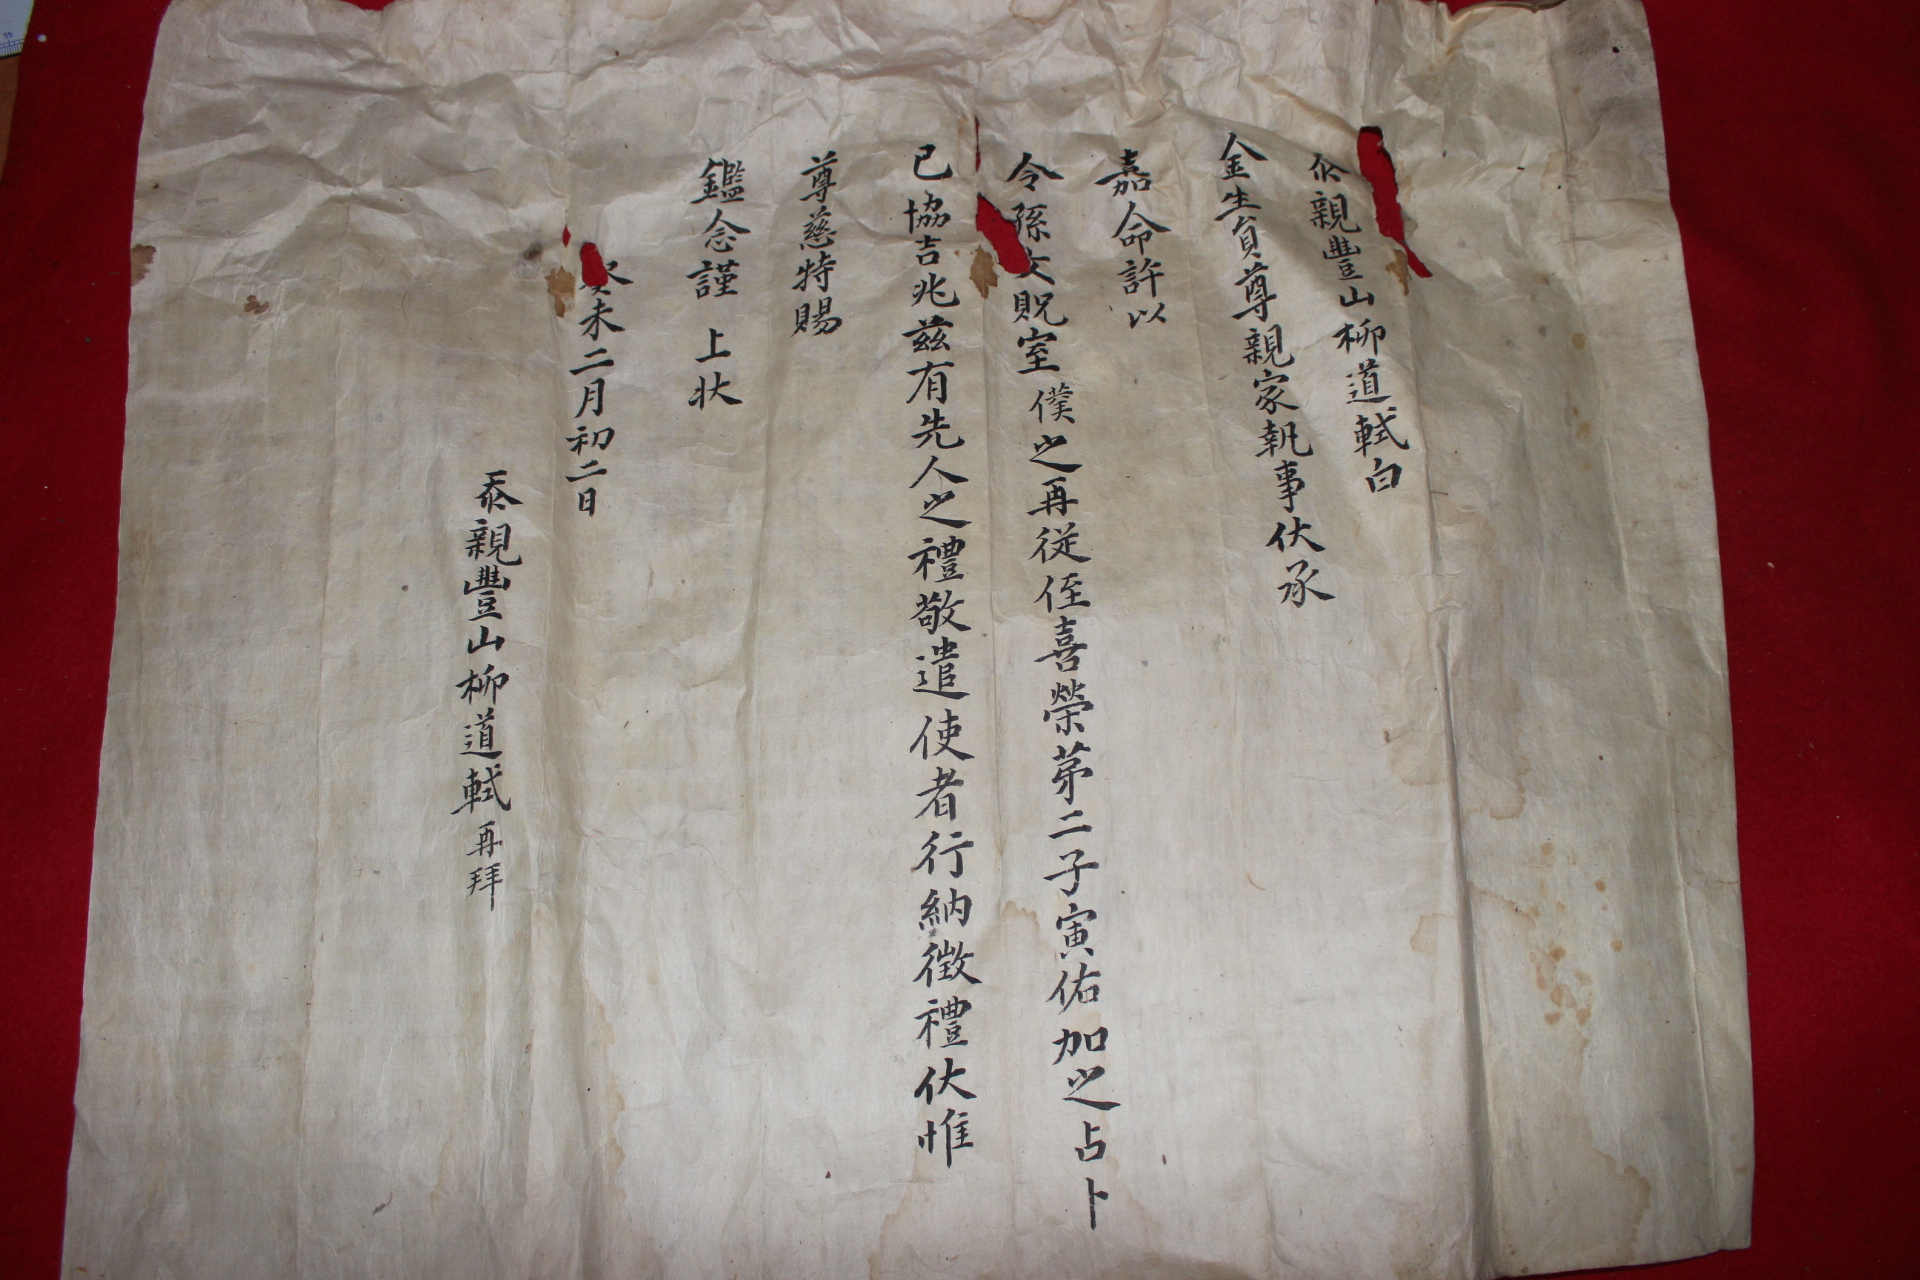 忝親豊山柳道軾白
金生員尊親家執事伏承
嘉命許以
令孫女貺室僕之再從侄喜榮茅二子寅佑加之占卜
已協吉兆茲有先人之禮敬遣使者行納徵禮伏惟
尊慈特賜
鑑念謹 上狀
癸未二月初二日
忝親豊山柳道軾再拜